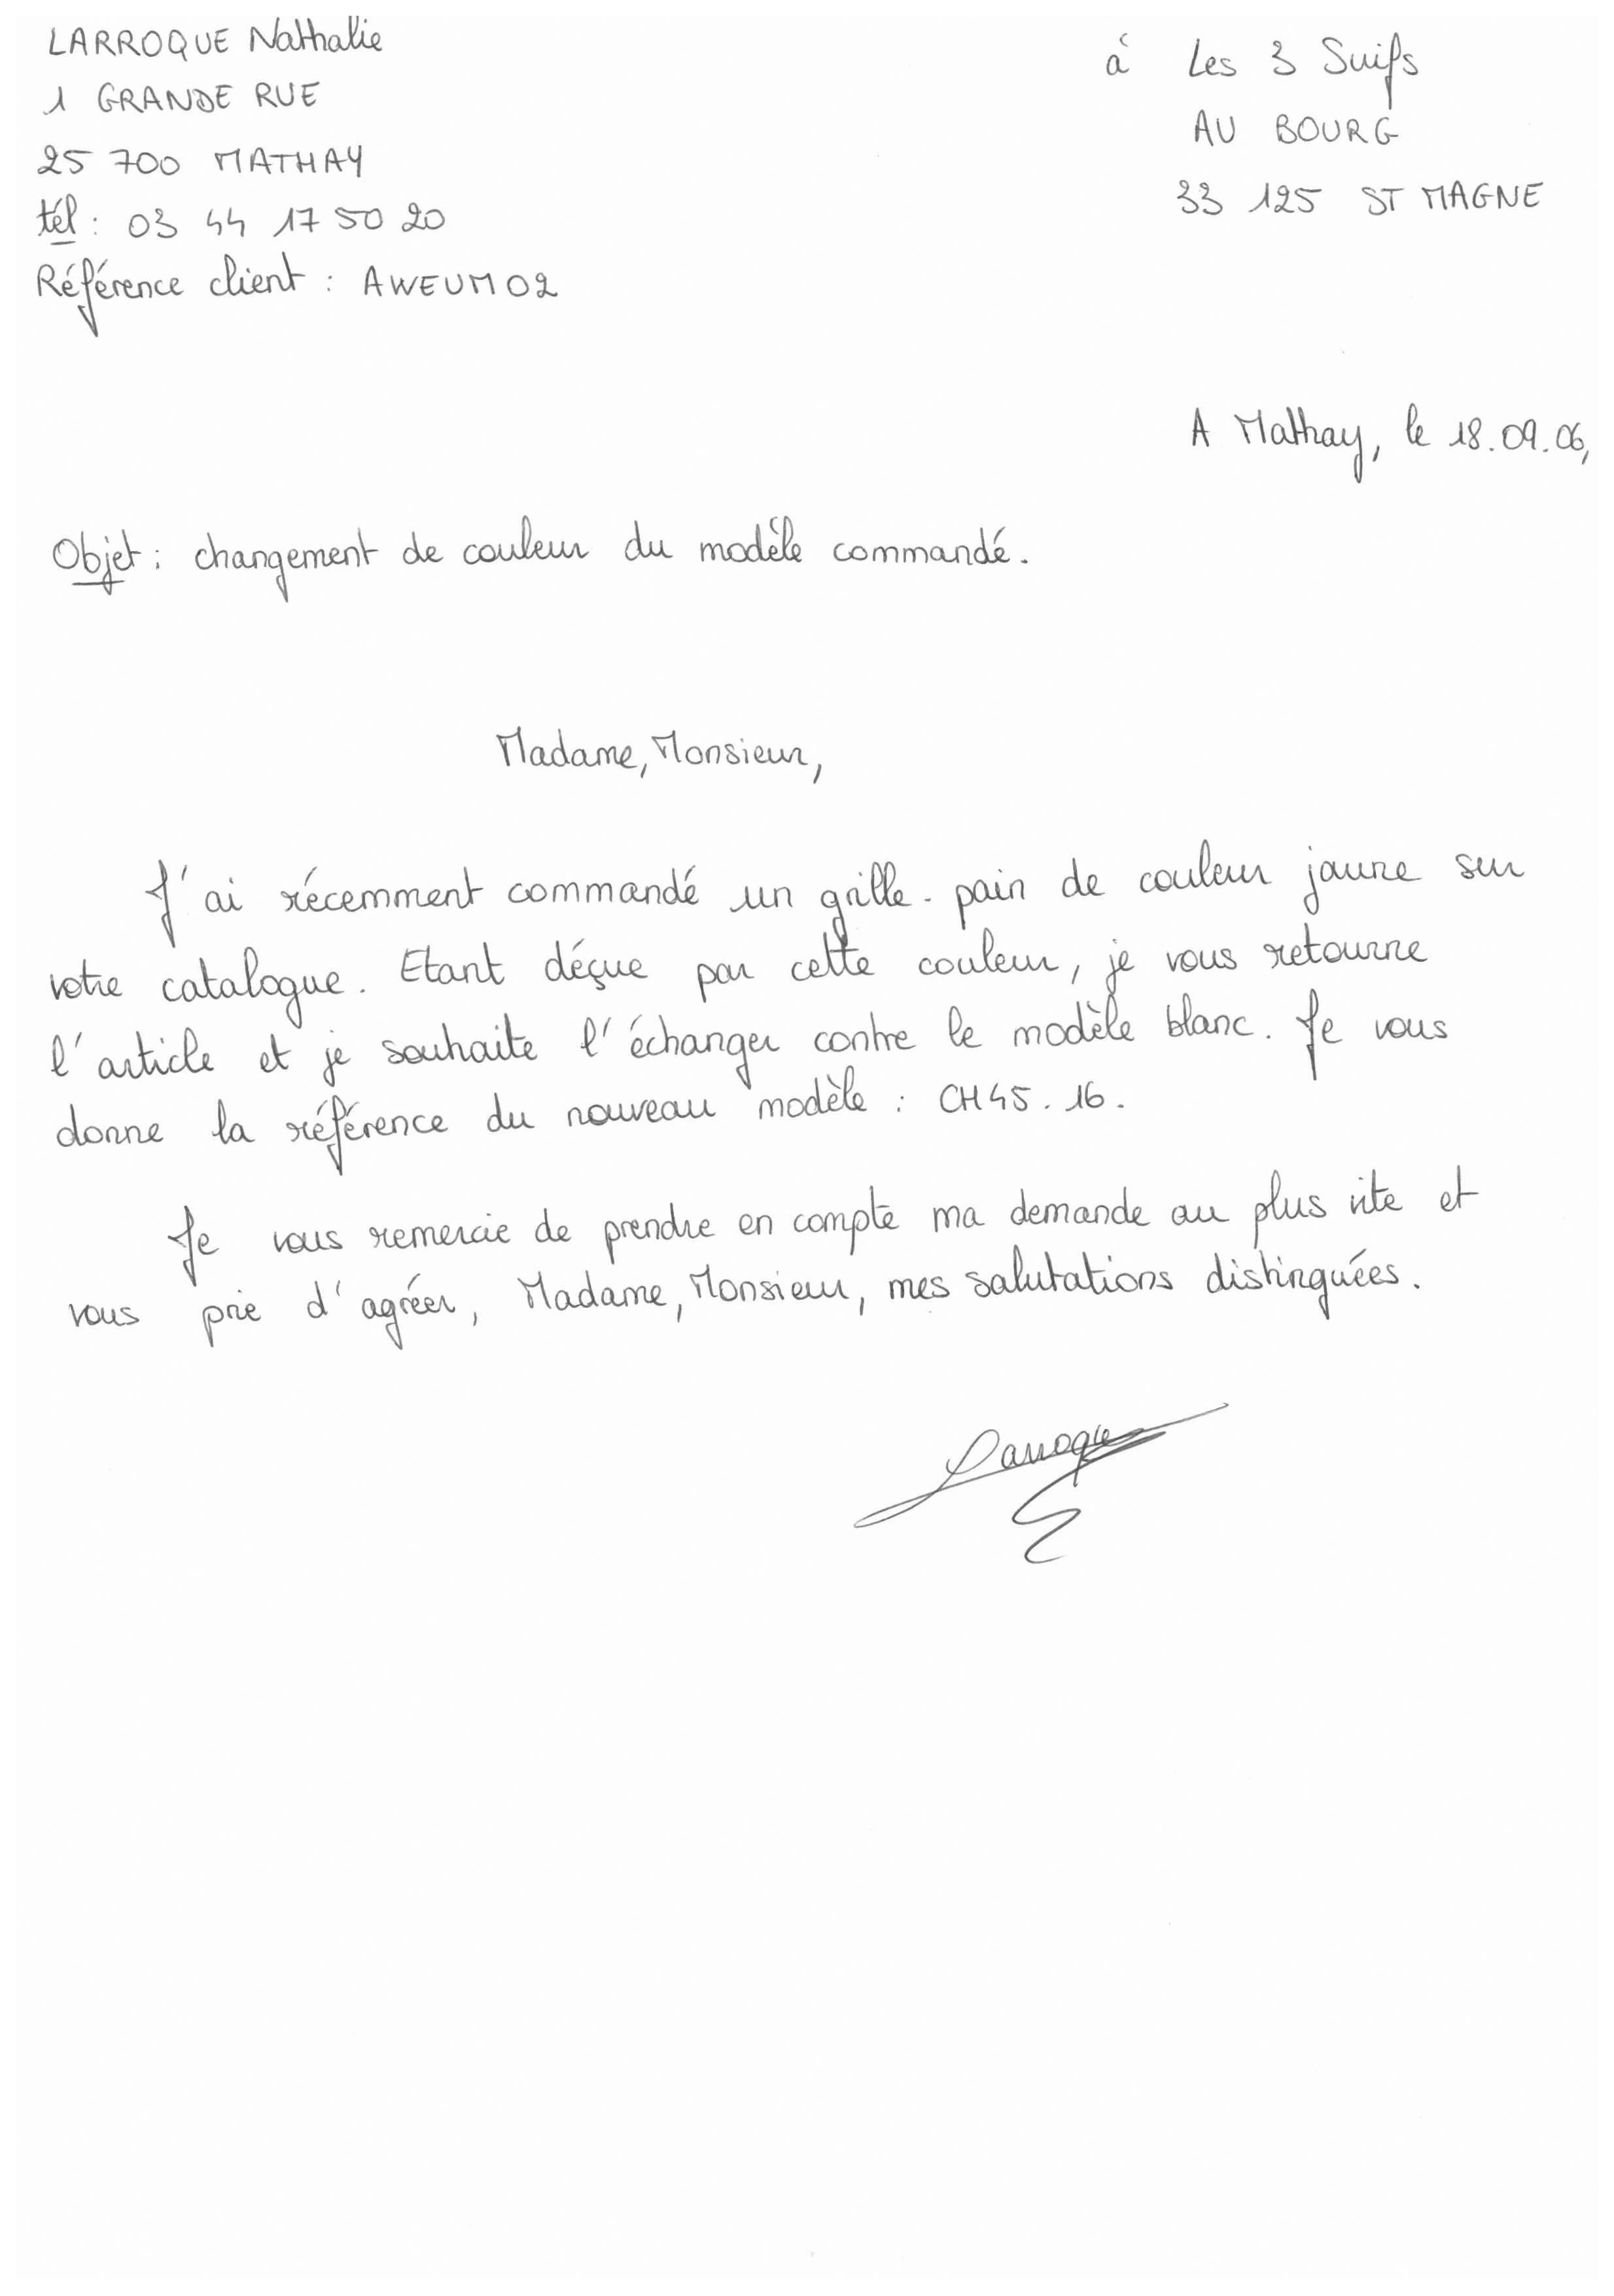 LARROQUE Nathalie
1 GRANDE RUE
25 700 MATHAY
tél : 03 44 17 50 20
Référence client : AWEUM02
à Les 3 Suifs
AU BOURG
33 125 ST MAGNE
A Mathay, le 18.09.06,
Objet : changement de couleur du modèle commandé.
Madame, Monsieur,
J'ai récemment commandé un grille-pain de couleur jaune sur
votre catalogue. Etant déçue par cette couleur, je vous retourne
l'article et je souhaite l'échanger contre le modèle blanc. Je vous
donne la référence du nouveau modèle : CH45.16.
Je vous remercie de prendre en compte ma demande au plus vite et
vous prie d'agréer, Madame, Monsieur, mes salutations distinguées.
Larroque